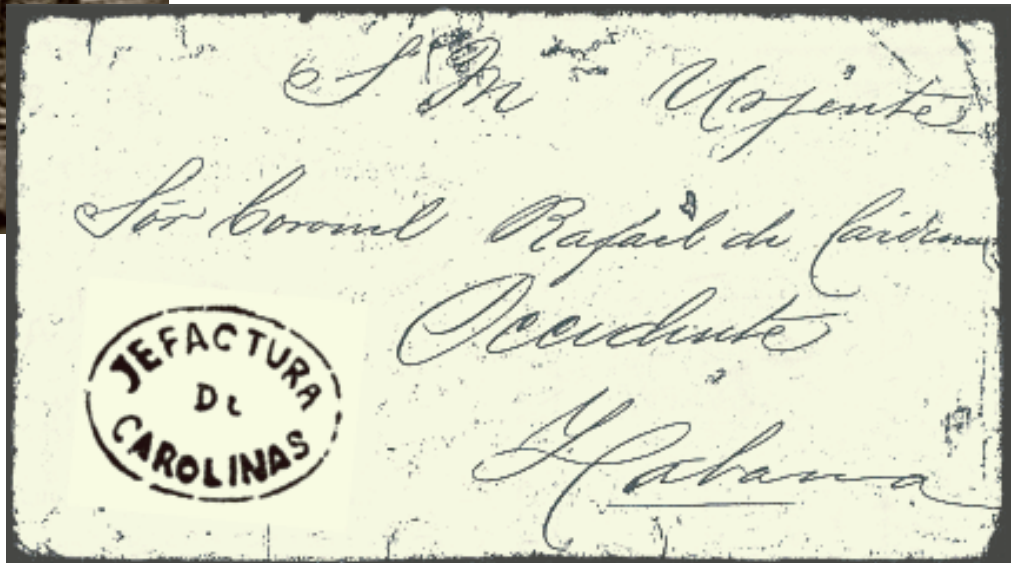 S. M Urjente
Sór Coronel Rafael de Cárdenas
Occidente
Habana
JEFACTURA
DE
CAROLINAS